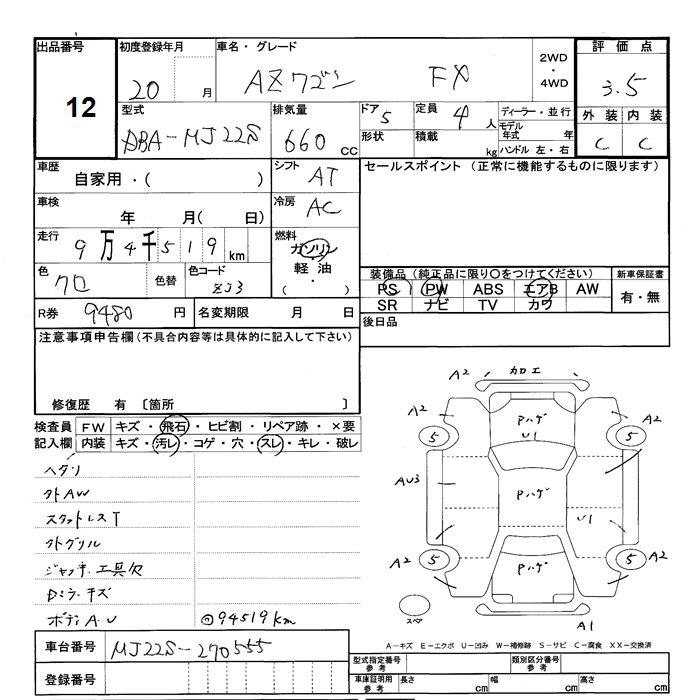 出品番号 初度登録年月 車名・グレード 2WD・4WD 評価点
12 20 月 AZワゴン FX 3.5
型式 排気量 ドア 定員 ディーラー・並行 外装 内装
DBA-MJ22S 660 cc 5 4 人 モデル年式 年 C C
形状 積載 kg ハンドル 左・右
車歴 シフト セールスポイント (正常に機能するものに限ります)
自家用・( ) AT
車検 冷房
年 月( 日) AC
走行 燃料
9万4千519 km ガソリン
軽油
( ・ )
色 色替 色コード 装備品 (純正品に限り○をつけてください) 新車保証書
クロ ZJ3 PS PW ABS エアB AW 有・無
SR ナビ TV カワ
R券 9480 円 名変期限 月 日 後日品
注意事項申告欄(不具合内容等は具体的に記入して下さい)
修復歴 有 〔箇所 〕
検査員 FW キズ・飛石・ヒビ割・リペア跡・×要
記入欄 内装 キズ・汚レ・コゲ・穴・スレ・キレ・破レ
ヘタリ
外AW
スタッドレスT
外グリル
ジャッキ.工具欠
Dミラーキズ
ボディA.U ◎94519km
A2 加工
A2 Pハゲ A2
5 U1 5
AU3 Pハゲ
U1
A2 A2
5 Pハゲ 5
スペア A1
A-キズ E-エクボ U-凹み W-補修跡 S-サビ C-腐食 XX-交換済
車台番号 MJ22S-270555
登録番号
型式指定番号 参考 類別区分番号 参考
車庫証明用 参考 長さ cm 幅 cm 高さ cm